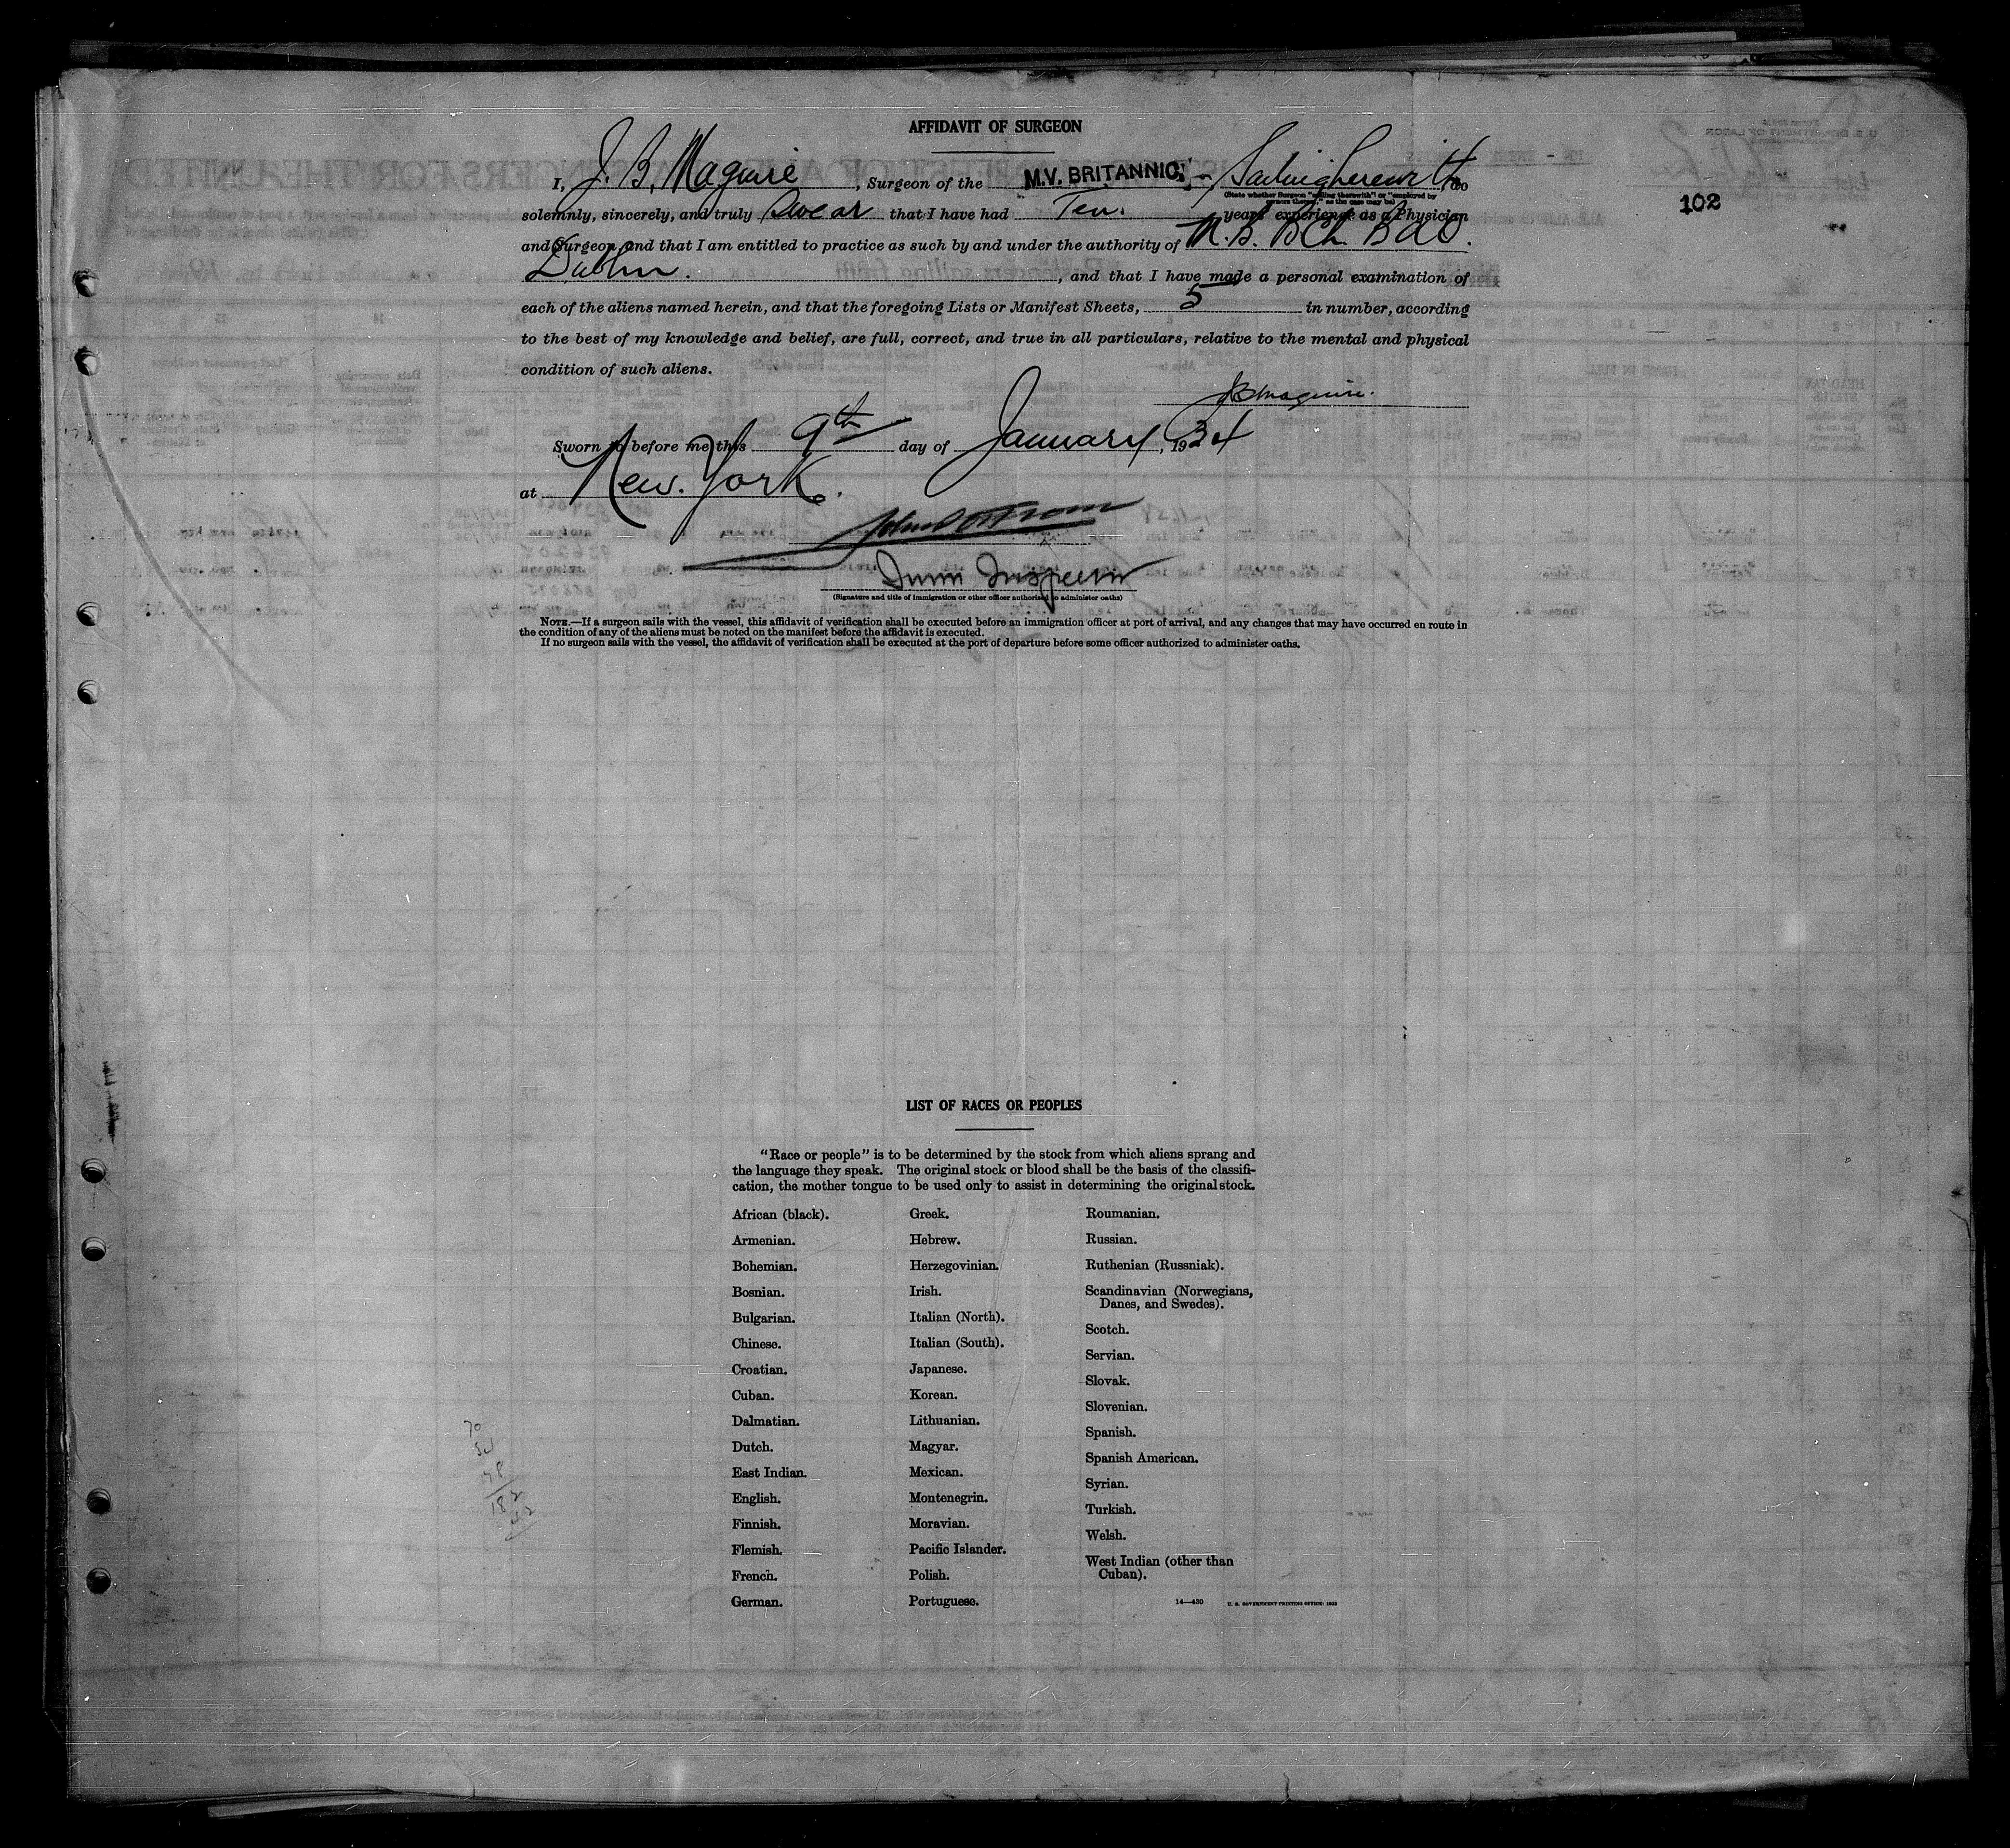 AFFIDAVIT OF SURGEON
102
I, J. B. Maguire, Surgeon of the M.V. BRITANNIC, - Sailing herewith do
(State whether Surgeon "sailing therewith" or "employed by
owners thereof," as the case may be)
solemnly, sincerely, and truly swear that I have had Ten. years' experience as a Physician
and Surgeon, and that I am entitled to practice as such by and under the authority of M.B. BCh. BAO.
Dublin., and that I have made a personal examination of
each of the aliens named herein, and that the foregoing Lists or Manifest Sheets, 5 in number, according
to the best of my knowledge and belief, are full, correct, and true in all particulars, relative to the mental and physical
condition of such aliens.
JB Maguire.
Sworn to before me this 9th day of January, 1934
at New York.
Imm Inspector
(Signature and title of immigration or other officer authorized to administer oaths)
NOTE.—If a surgeon sails with the vessel, this affidavit of verification shall be executed before an immigration officer at port of arrival, and any changes that may have occurred en route in
the condition of any of the aliens must be noted on the manifest before the affidavit is executed.
If no surgeon sails with the vessel, the affidavit of verification shall be executed at the port of departure before some officer authorized to administer oaths.
LIST OF RACES OR PEOPLES
"Race or people" is to be determined by the stock from which aliens sprang and
the language they speak. The original stock or blood shall be the basis of the classifi-
cation, the mother tongue to be used only to assist in determining the original stock.
African (black).
Armenian.
Bohemian.
Bosnian.
Bulgarian.
Chinese.
Croatian.
Cuban.
Dalmatian.
Dutch.
East Indian.
English.
Finnish.
Flemish.
French.
German.
Greek.
Hebrew.
Herzegovinian.
Irish.
Italian (North).
Italian (South).
Japanese.
Korean.
Lithuanian.
Magyar.
Mexican.
Montenegrin.
Moravian.
Pacific Islander.
Polish.
Portuguese.
Roumanian.
Russian.
Ruthenian (Russniak).
Scandinavian (Norwegians,
Danes, and Swedes).
Scotch.
Servian.
Slovak.
Slovenian.
Spanish.
Spanish American.
Syrian.
Turkish.
Welsh.
West Indian (other than
Cuban).
14—430 U. S. GOVERNMENT PRINTING OFFICE: 1933
70
182